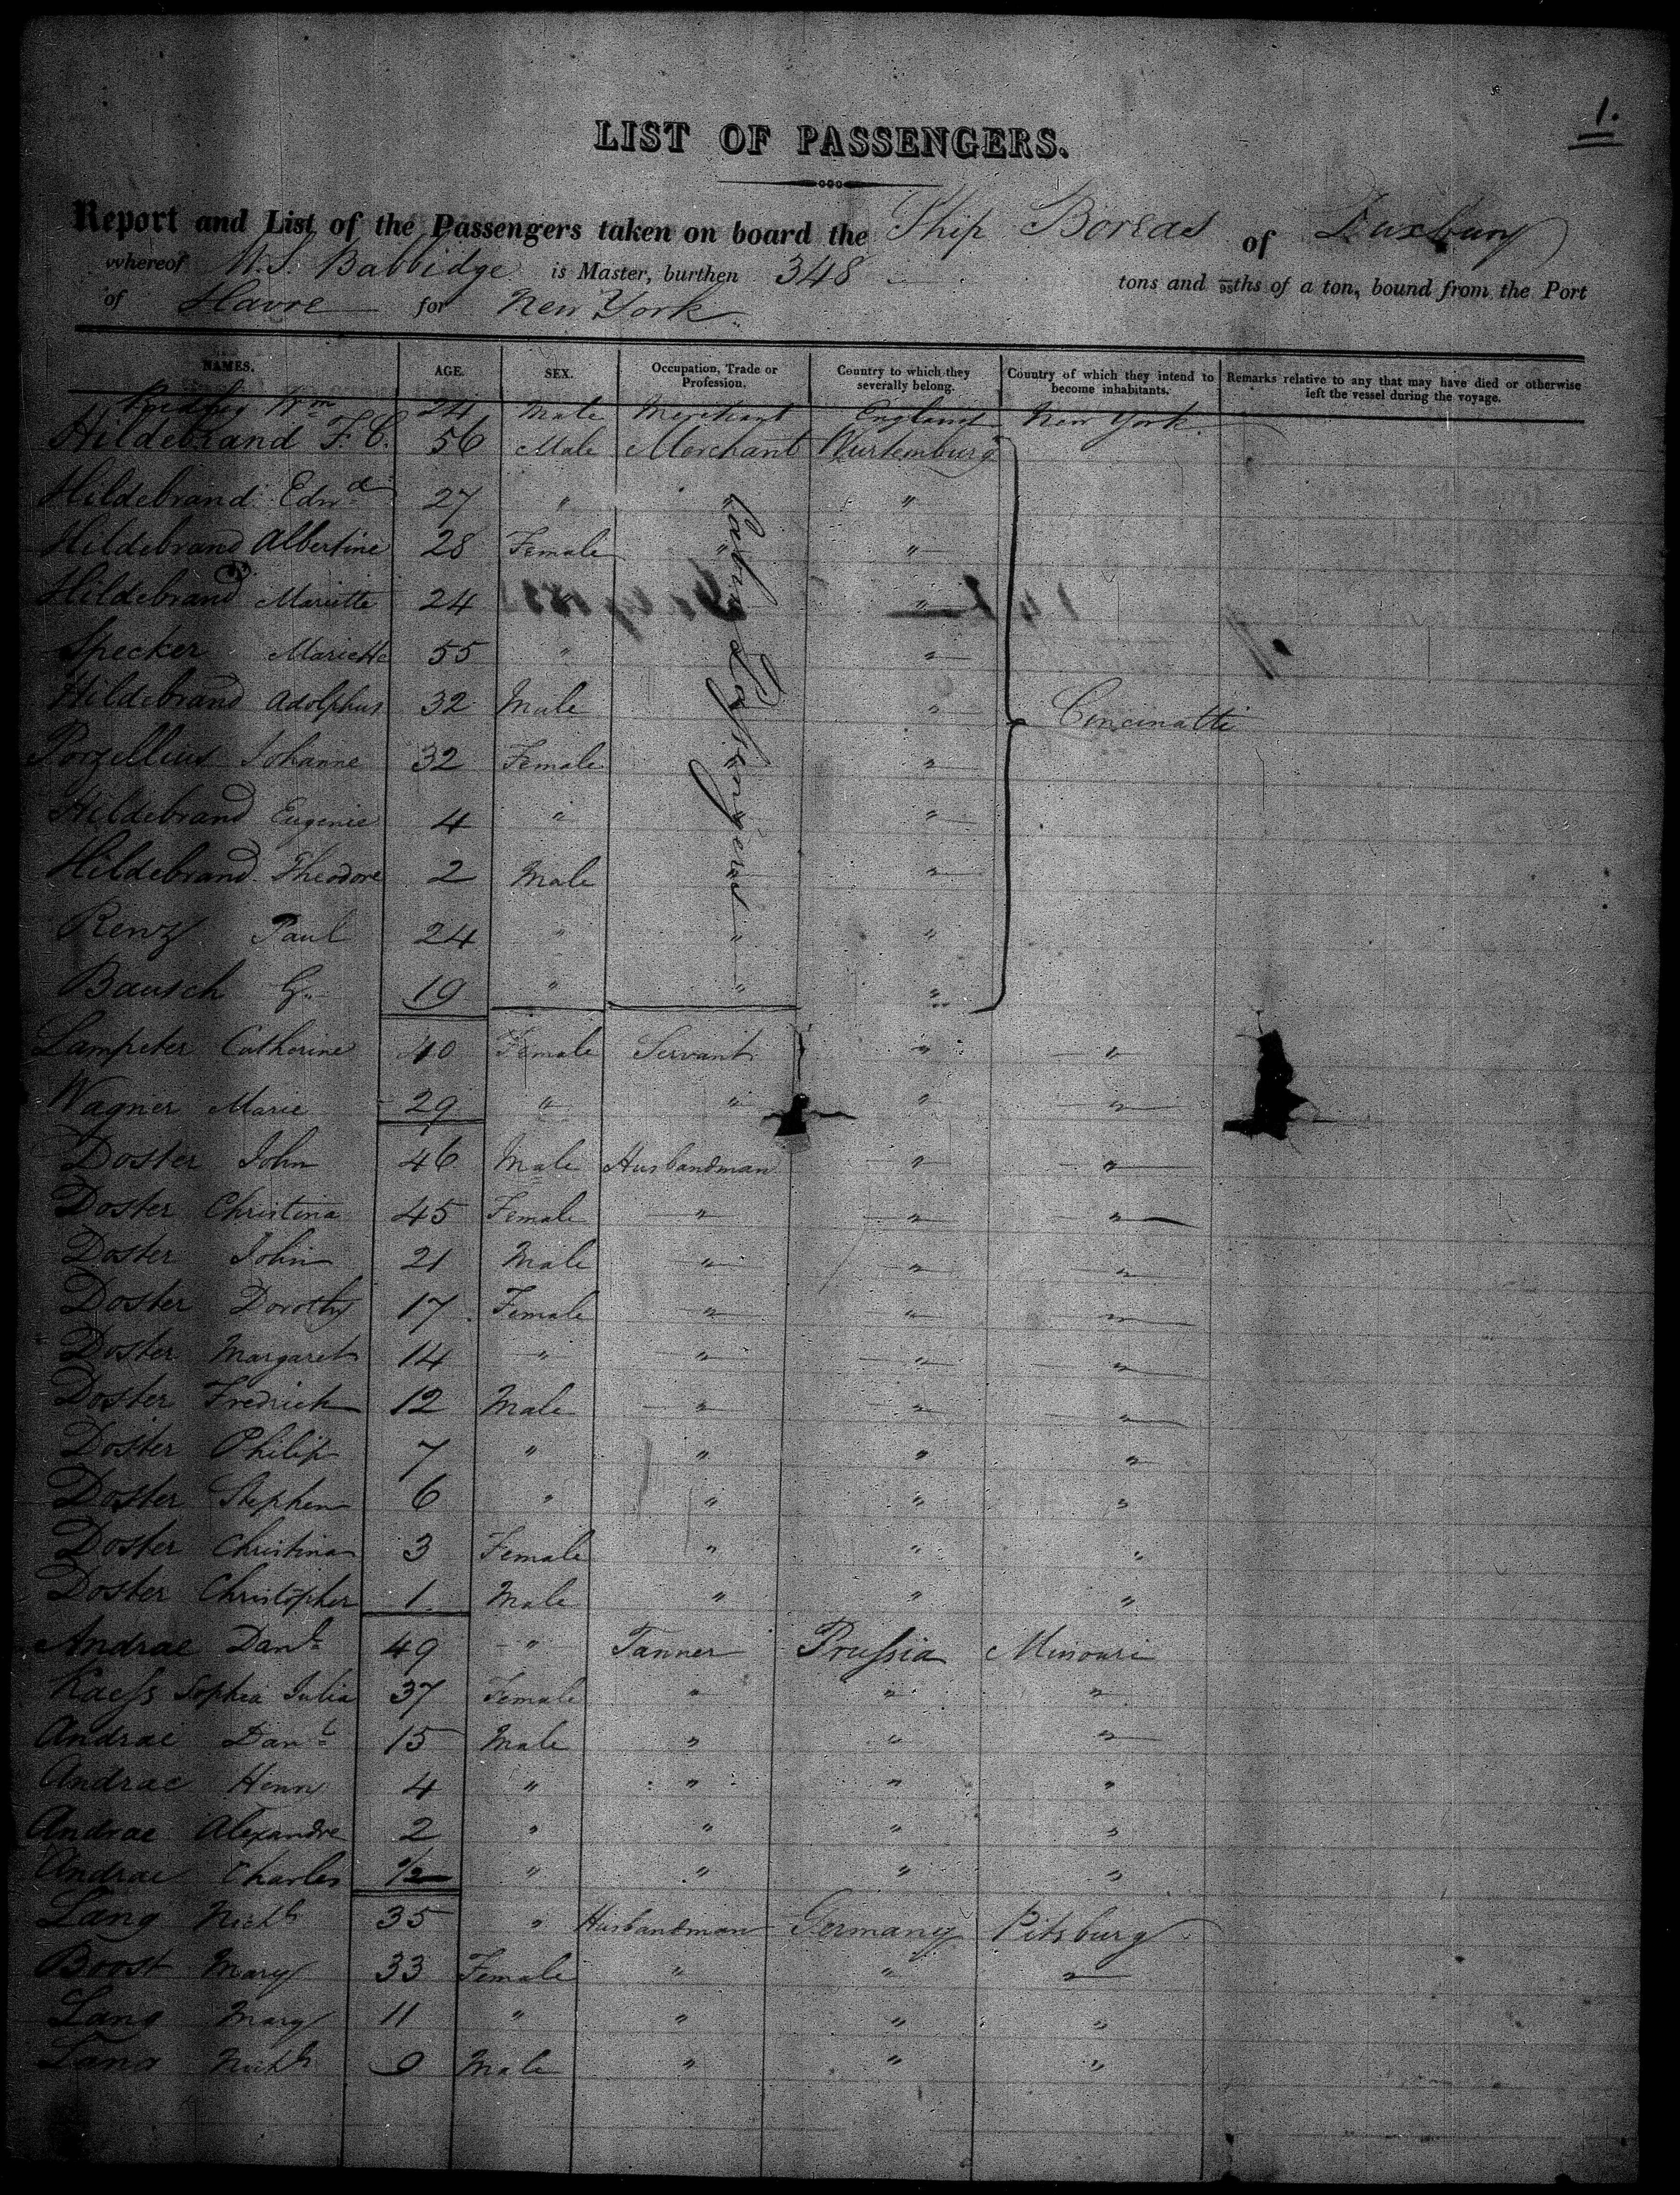 1.
LIST OF PASSENGERS.
Report and List of the Passengers taken on board the Ship Boreas of Duxbury
whereof W. S. Babbidge is Master, burthen 348 tons and 95ths of a ton, bound from the Port
of Havre for New York
NAMES. AGE. SEX. Occupation, Trade or Profession. Country to which they severally belong. Country of which they intend to become inhabitants. Remarks relative to any that may have died or otherwise left the vessel during the voyage.
Wm 24 Male Merchant England New York
Hildebrand F. C. 56 Male Merchant Wurtemburg
Hildebrand Edwd 27 " " "
Hildebrand Albertine 28 Female " "
Hildebrand Mariette 24 " "
Specker Mariette 55 " "
Hildebrand Adolphus 32 Male " Cincinatti
Porzellius Johanne 32 Female " "
Hildebrand Eugenie 4 " " "
Hildebrand Theodore 2 Male " "
Renz Paul 24 " " "
Bausch G. 19 " " "
Cabin Passengers
Lampeter Catherine 40 Female Servant " "
Wagner Marie 29 " " " "
Doster John 46 Male Husbandman " "
Doster Christina 45 Female " " "
Doster John 21 Male " " "
Doster Dorothy 17 Female " " "
Doster Margaret 14 " " " "
Doster Fredrick 12 Male " " "
Doster Philip 7 " " " "
Doster Stephen 6 " " " "
Doster Christina 3 Female " " "
Doster Christopher 1 Male " " "
Andrae Danl 49 " Tanner Prussia Missouri
Kaess Sophia Julia 37 Female " " "
Andrae Danl 15 Male " " "
Andrae Henry 4 " " " "
Andrae Alexandre 2 " " " "
Andrae Charles 1/2 " " " "
Lang Nichs 35 " Husbandman Germany Pitsburg
Boost Mary 33 Female " " "
Lang Mary 11 " " " "
Lang Nichs 9 Male " " "